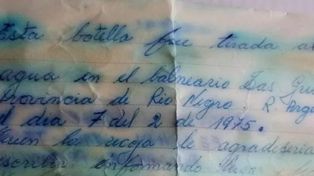 Esta botella fue tirada a
agua en el balneario Las Gru
Provincia de Río Negro R. Arg
el dia 7 del 2 de 1975.
la se agradeceria
informando